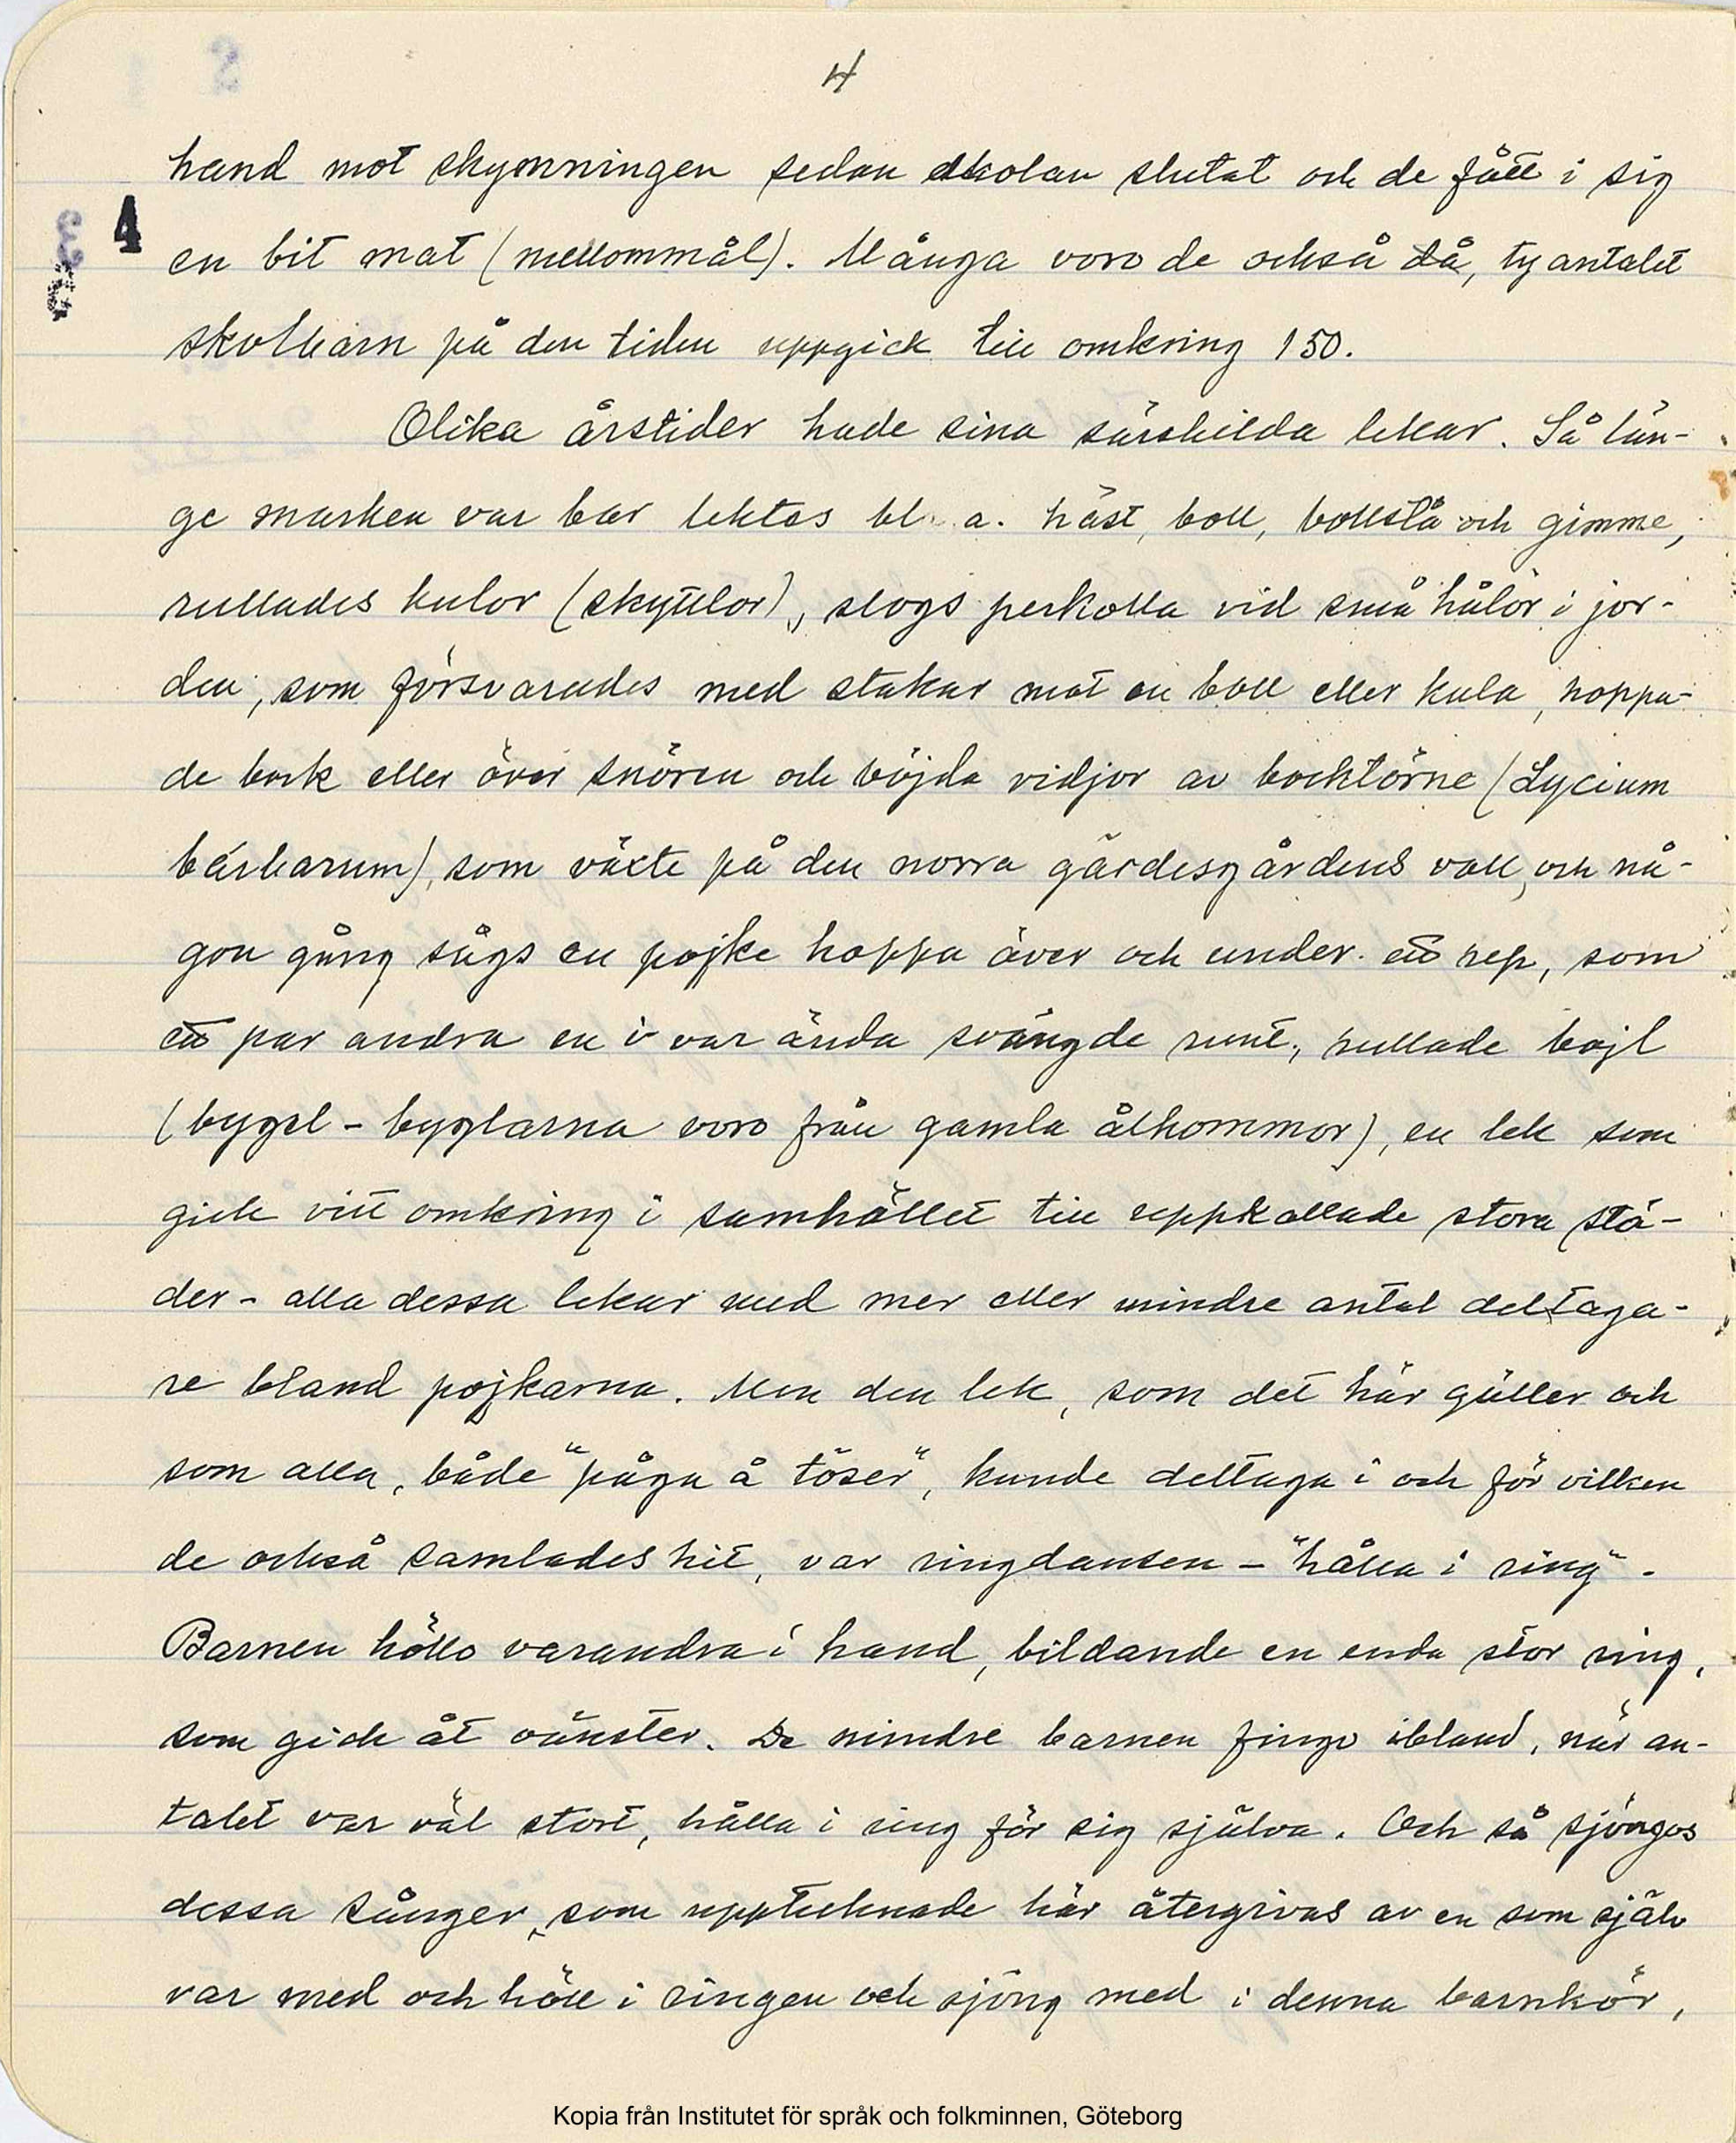 4
hand mot skymningen sedan skolan slutat och de fått i sig
4
en bit mat (mellommål). Många voro de också då, ty antalet
skolbarn på den tiden uppgick till omkring 150.
Olika årstider hade sina särskilda lekar. Så län-
ge marken var bar lektes bl. a. häst, boll, bollslå och gimme,
rullades kulor (skyttlor), slogs perkolla vid små hålor i jor-
den, som försvarades med stakar mot en boll eller kula, hoppa-
de bock eller över snören och böjda vidjor av bocktörne (Lycium
bärbarum), som växte på den norra gärdesgårdens vall, och nå-
gon gång sågs en pojke hoppa över och under ett rep, som
ett par andra en i var ända svängde runt, rullade bojl
(bygel - byglarna voro från gamla ålhommor), en lek som
gick vitt omkring i samhället till uppkallade stora stä-
der - alla dessa lekar med mer eller mindre antal deltaga-
re bland pojkarna. Men den lek, som det här gäller och
som alla, både "påga å töser", kunde deltaga i och för vilken
de också samlades hit, var ringdansen - "hålla i ring".
Barnen höllo varandra i hand, bildande en enda stor ring,
som gick åt vänster. De mindre barnen fingo ibland, när an-
talet var väl stort, hålla i ring för sig själva. Och så sjöngos
dessa sånger, som upptecknade här återgivas av en som själv
var med och höll i ringen och sjöng med i denna barnkör,
Kopia från Institutet för språk och folkminnen, Göteborg